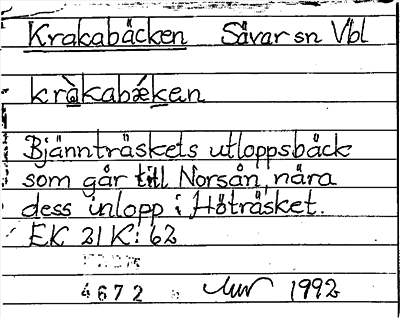 Krakabäcken Sävar sn Vbl
kràkabǽken
Bjännträskets utloppsbäck
som går till Norsån, nära
dess inlopp i Höträsket.
EK 21 K: 62
4672 1992